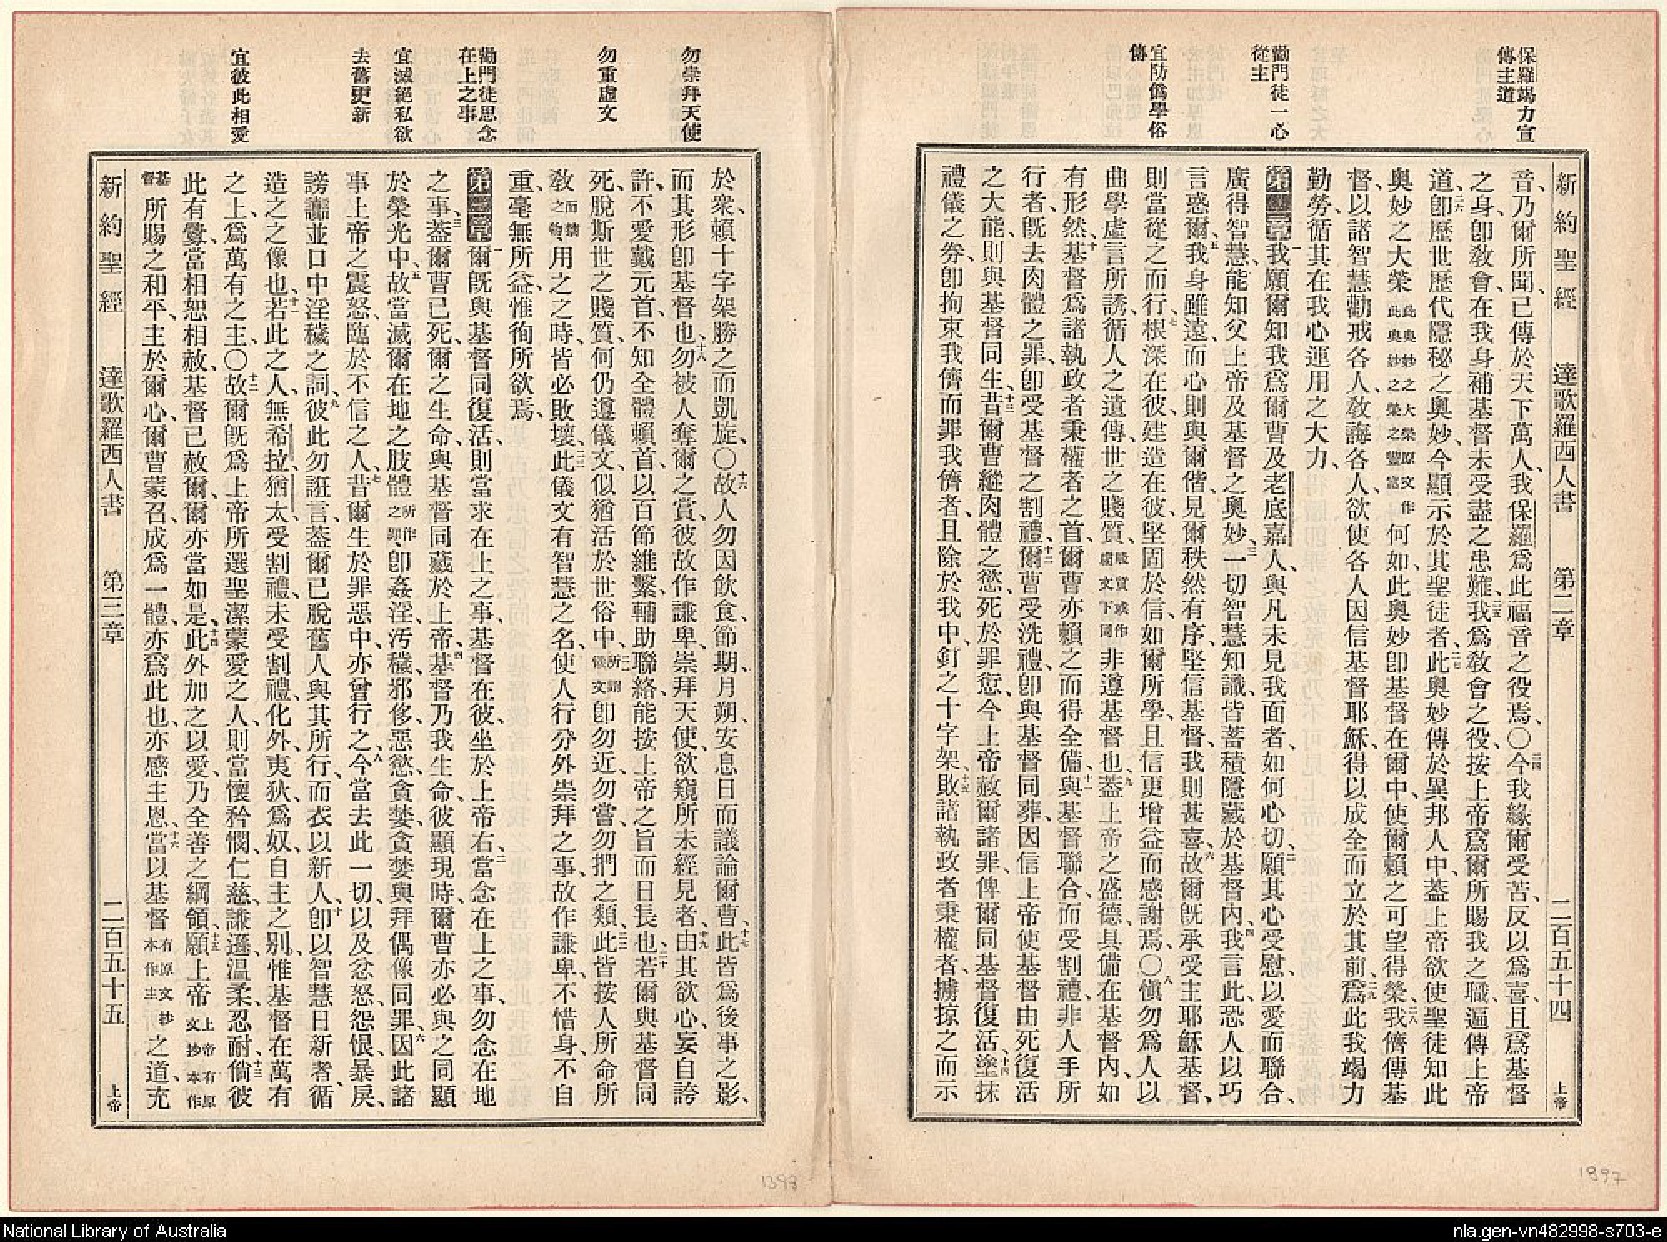 保羅竭力宣
傳主道
勸門徒一心
從主
宜防僞學俗
傳
新約聖經 達歌羅西人書 第二章 二百五十四 上帝
音、乃爾所聞、已傳於天下萬人、我保羅爲此福音之役焉、〇二四今我緣爾受苦、反以爲喜、且爲基督
之身、卽敎會、在我身補基督未受盡之患難、二五我爲敎會之役、按上帝爲爾所賜我之職、遍傳上帝
道、二六卽歷世歷代隱秘之奧妙、今顯示於其聖徒者、二七此奧妙傳於異邦人中、蓋上帝欲使聖徒知此
奧妙之大榮、此奧妙之大榮原文作此奧妙之榮之豐富何如、此奧妙卽基督在爾中、使爾賴之可望得榮、二八我儕傳基
督、以諸智慧勸戒各人、敎誨各人、欲使各人因信基督耶穌、得以成全而立於其前、二九爲此我竭力
勤勞、循其在我心運用之大力、
第二章 一我願爾知我爲爾曹及老底嘉人、與凡未見我面者、如何心切、二願其心受慰、以愛而聯合、
廣得智慧、能知父上帝及基督之奧妙、三一切智慧知識、皆蓄積隱藏於基督內、四我言此、恐人以巧
言惑爾、五我身雖遠、而心則與爾偕、見爾秩然有序、堅信基督、我則甚喜、六故爾旣承受主耶穌基督、
則當從之而行、七根深在彼、建造在彼、堅固於信、如爾所學、且信更增益、而感謝焉、〇八愼勿爲人以
曲學虛言所誘、循人之遺傳、世之賤質、賤質或作虛文下同非遵基督也、九蓋上帝之盛德、具備在基督內、如
有形然、十基督爲諸執政者秉權者之首、爾曹亦賴之而得全備、十一與基督聯合、而受割禮、非人手所
行者、旣去肉體之罪、卽受基督之割禮、十二爾曹受洗禮、卽與基督同葬、因信上帝使基督由死復活
之大能、則與基督同生、十三昔爾曹縱肉體之慾、死於罪愆、今上帝赦爾諸罪、俾爾同基督復活、十四塗抹
禮儀之劵、卽拘束我儕而罪我儕者、且除於我中、釘之十字架、十五敗諸執政者秉權者、擄掠之而示
勿崇拜天使
勿重虛文
勸門徒思念
在上之事
宜滅絕私欲
去舊更新
宜彼此相愛
於衆、賴十字架勝之而凱旋、〇十六故人勿因飮食、節期、月朔、安息日而議論爾曹、十七此皆爲後事之影、
而其形卽基督也、十八勿被人奪爾之賞、彼故作謙卑、崇拜天使、欲窺所未經見者、由其欲心妄自誇
許、十九不愛戴元首、不知全體賴首、以百節維繫輔助聯絡、能按上帝之旨而日長也、二十若爾與基督同
死、脫斯世之賤質、何仍遵儀文、似猶活於世俗中、二一所謂儀文卽勿近、勿嘗、勿捫之類、二二此皆按人所命所
敎、而諸之物用之之時、皆必敗壞、二三此儀文有智慧之名、使人行分外崇拜之事、故作謙卑、不惜身、不自
重、毫無所益、惟徇所欲焉、
第三章 一爾旣與基督同復活、則當求在上之事、基督在彼、坐於上帝右、二當念在上之事、勿念在地
之事、三蓋爾曹已死、爾之生命、與基督同藏於上帝、四基督乃我生命、彼顯現時、爾曹亦必與之同顯
於榮光中、五故當滅爾在地之肢體、所作之罪卽姦淫、汚穢、邪侈、惡慾、貪婪、貪婪與拜偶像同罪、六因此諸
事、上帝之震怒臨於不信之人、七昔爾生於罪惡中、亦曾行之、八今當去此一切、以及忿怒、怨恨、暴戾、
謗讟、並口中淫穢之詞、九彼此勿誑言、蓋爾已脫舊人、與其所行、十而衣以新人、卽以智慧日新者、循
造之之像也、十一若此之人、無希拉、猶太、受割禮、未受割禮、化外、夷狄、爲奴、自主之別、惟基督在萬有
之上、爲萬有之主、〇十二故爾旣爲上帝所選、聖潔蒙愛之人、則當懷矜憫、仁慈、謙遜、溫柔、忍耐、十三倘彼
此有釁、當相恕相赦、基督已赦爾、爾亦當如是、十四此外加之以愛、乃全善之綱領、十五願上帝上帝有原文抄本作
基督所賜之和平、主於爾心、爾曹蒙召成爲一體、亦爲此也、亦感主恩、十六當以基督有原文抄本作主之道、充
新約聖經 達歌羅西人書 第三章 二百五十五 上帝
1397
1397
National Library of Australia
nla.gen-vn482998-s703-e